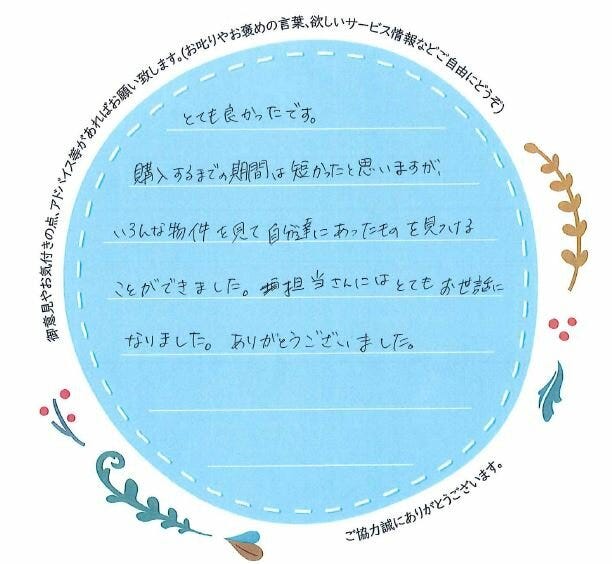 御意見やお気付きの点、アドバイス等があればお願い致します。(お叱りやお褒めの言葉、欲しいサービス情報などご自由にどうぞ)
とても良かったです。
購入するまでの期間は短かったと思いますが、
いろんな物件を見て自分達にあったものを見つける
ことができました。担当さんにはとてもお世話に
なりました。ありがとうございました。
ご協力誠にありがとうございます。